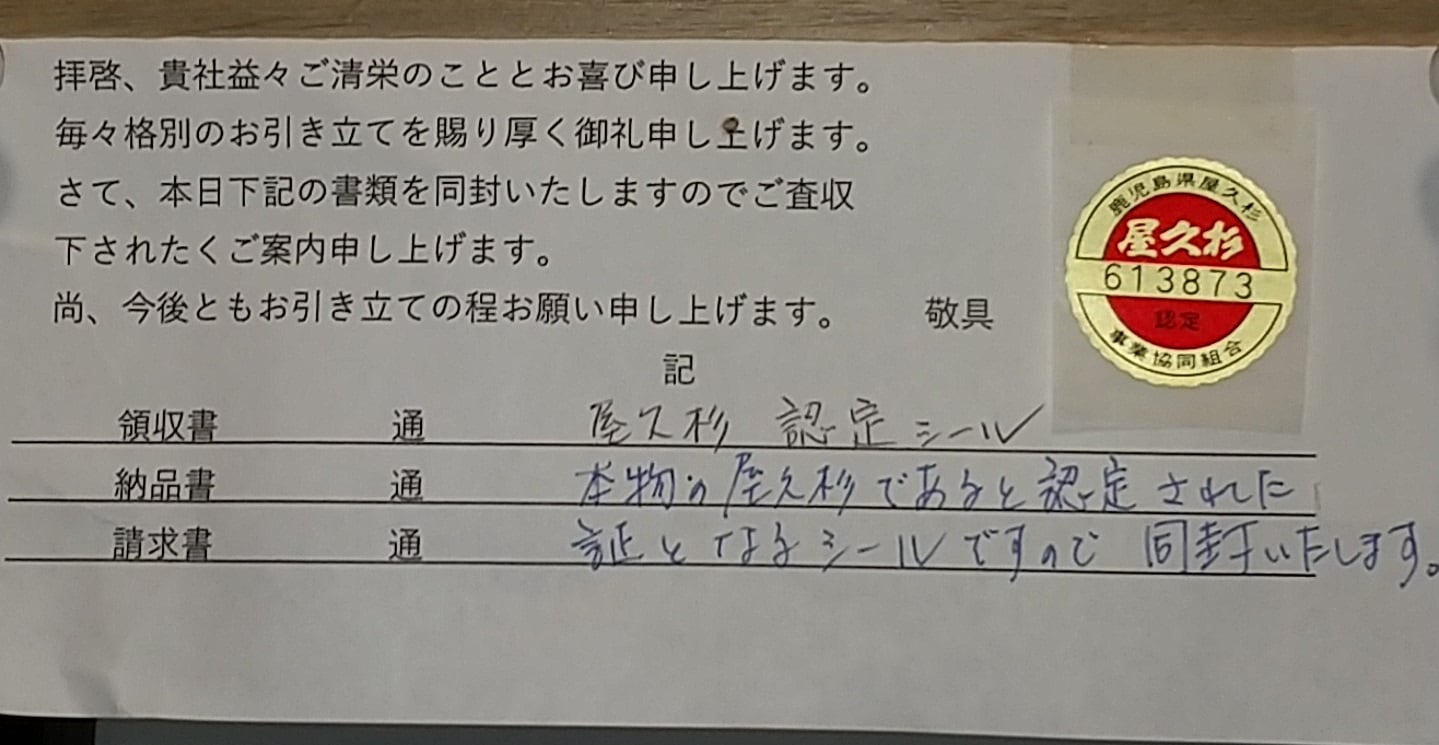 拝啓、貴社益々ご清栄のこととお喜び申し上げます。
毎々格別のお引き立てを賜り厚く御礼申し上げます。
さて、本日下記の書類を同封いたしますのでご査収
下されたくご案内申し上げます。
尚、今後ともお引き立ての程お願い申し上げます。 敬具
鹿児島県屋久杉
屋久杉
613873
認定
事業協同組合
記
領収書 通 屋久杉 認定シール
納品書 通 本物の屋久杉であると認定された
請求書 通 証となるシールですので同封いたします。